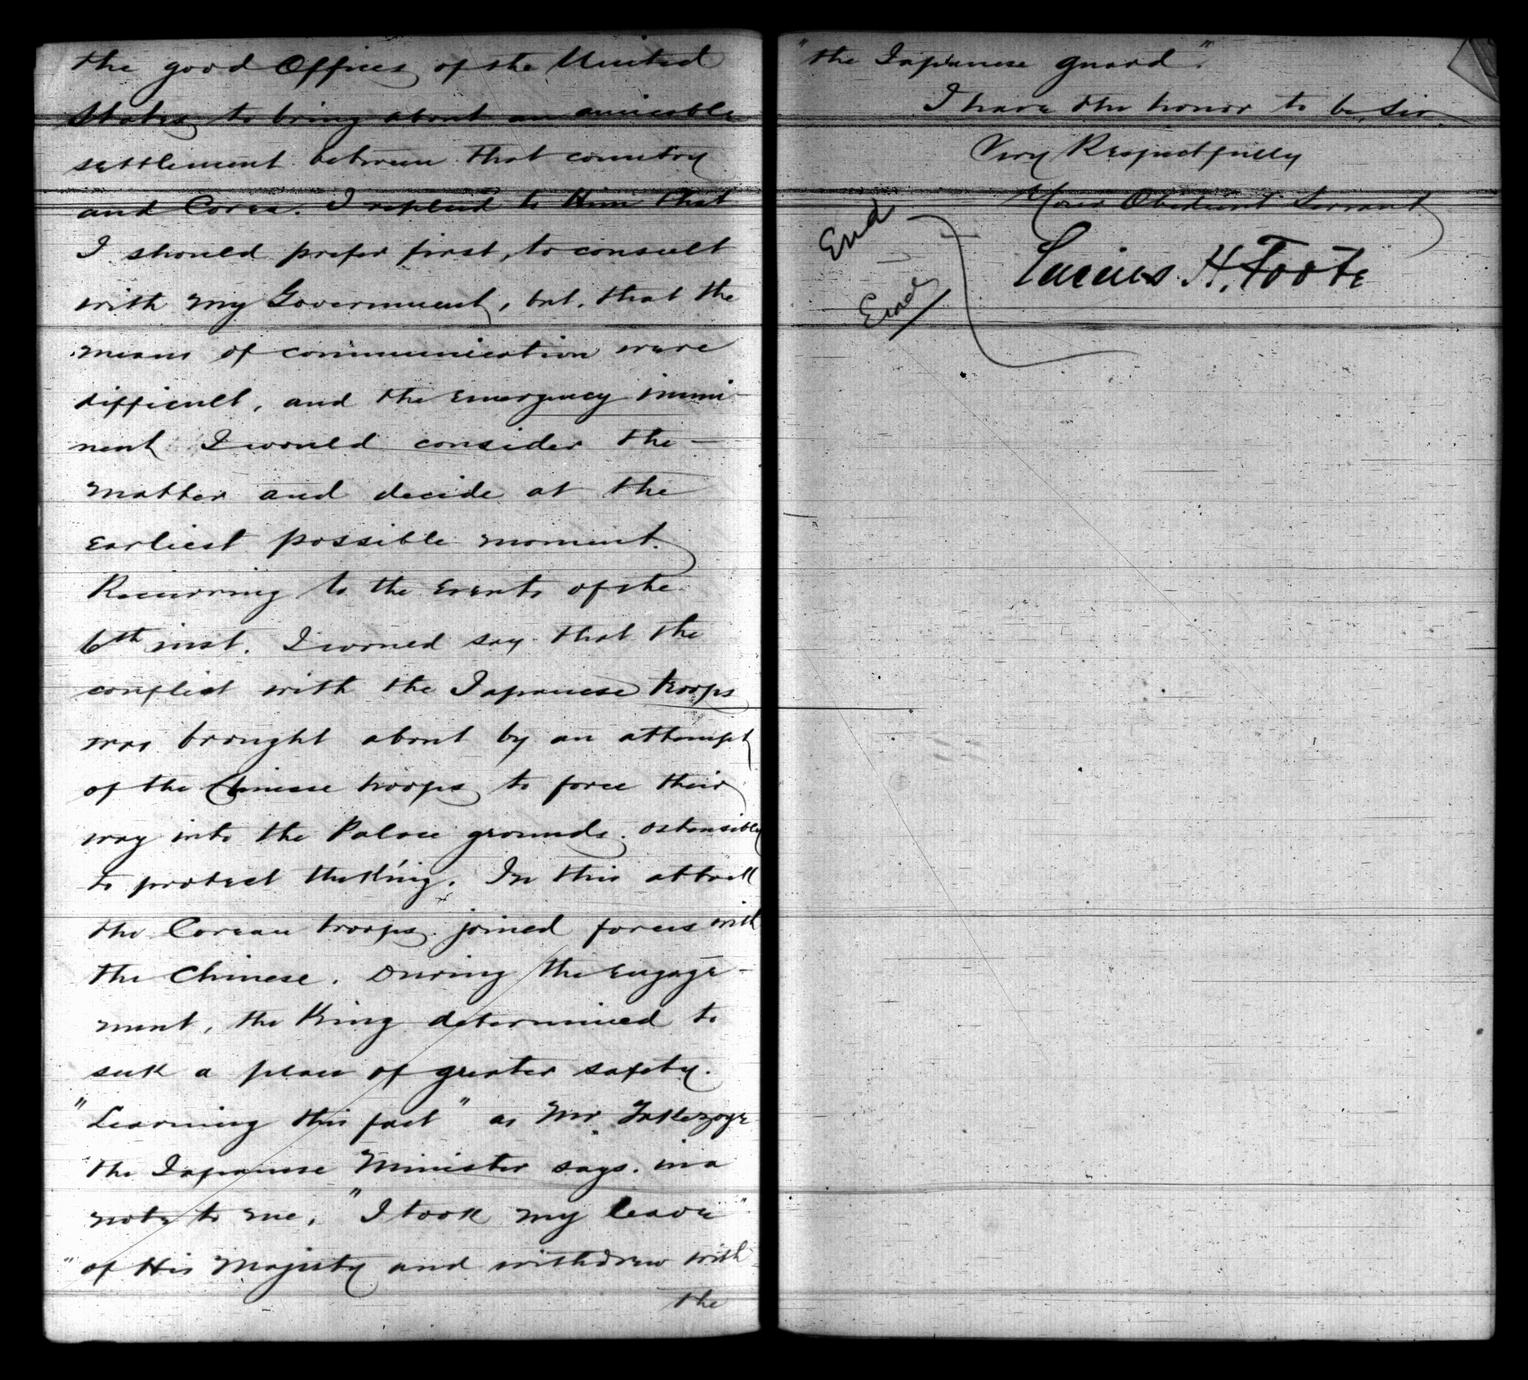 the good Offices of the United
States, to bring about an amicable
settlement between that country
and Corea. I replied to Him that
I should prefer first, to consult
with my Government, but, that the
means of communication were
difficult, and the emergency immi-
nent I would consider the
matter and decide at the
earliest possible moment.
Recurring to the Events of the
6th inst. I would say that the
conflict with the Japanese troops
was brought about by an attempt
of the Chinese troops to force their
way into the Palace grounds. ostensibly
to protect the King. In this attack
the Corean troops joined forces with
the Chinese. During the engage-
ment, the King determined to
seek a place of greater safety.
"Learning this fact" as Mr. Takezoye
the Japanese Minister says. in a
note to me, "I took my leave"
"of His Majesty and withdrew with
the
"the Japanese guard."
I have the honor to be, Sir,
Very Respectfully
Your Obedient Servant
Lucius H. Foote
End